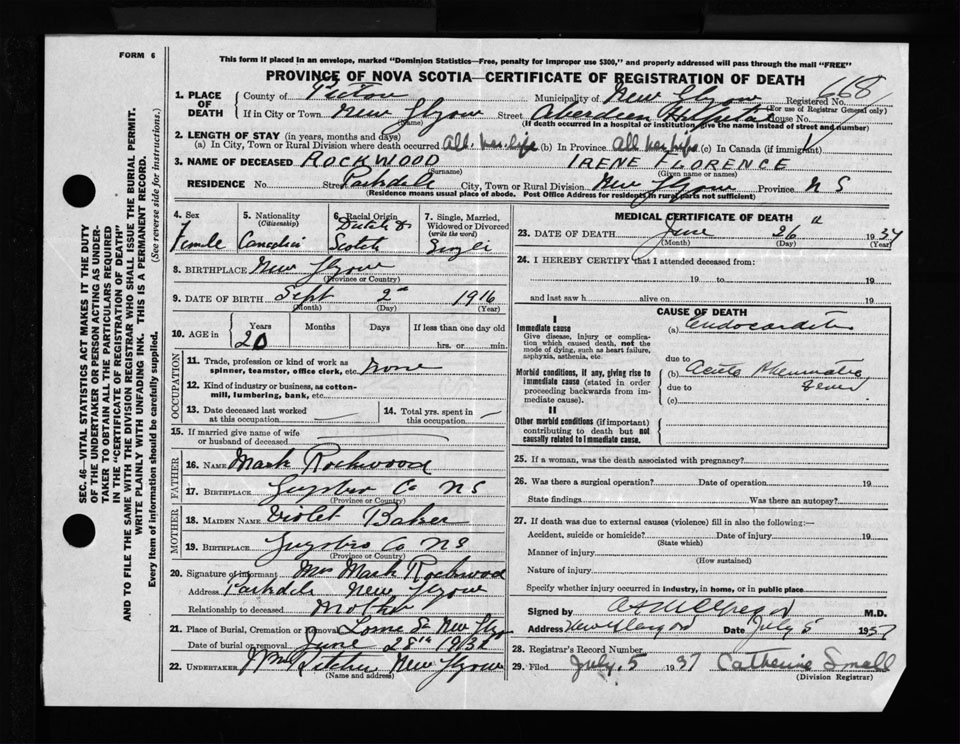 FORM 6
This form if placed in an envelope, marked "Dominion Statistics—Free, penalty for improper use $300," and properly addressed will pass through the mail "FREE"
PROVINCE OF NOVA SCOTIA—CERTIFICATE OF REGISTRATION OF DEATH
668
1. PLACE OF DEATH County of Pictou Municipality of New Glasgow Registered No. (For use of Registrar General only)
If in City or Town New Glasgow (Name) Street Aberdeen Hospital House No.
(If death occurred in a hospital or institution, give the name instead of street and number)
2. LENGTH OF STAY (in years, months and days)
(a) In City, Town or Rural Division where death occurred All her life (b) In Province All her life (c) In Canada (if immigrant)
3. NAME OF DECEASED ROCKWOOD (Surname) IRENE FLORENCE (Given name or names)
RESIDENCE No. Street Parkdale City, Town or Rural Division New Glasgow Province N S
(Residence means usual place of abode. Post Office Address for residents in rural parts not sufficient)
4. Sex 5. Nationality (Citizenship) 6. Racial Origin 7. Single, Married, Widowed or Divorced (write the word)
Female Canadian Dutch & Scotch Single
8. BIRTHPLACE New Glasgow
(Province or Country)
9. DATE OF BIRTH Sept 2nd 1916
(Month) (Day) (Year)
10. AGE in Years Months Days If less than one day old
20 hrs. or min.
OCCUPATION
11. Trade, profession or kind of work as spinner, teamster, office clerk, etc. None
12. Kind of industry or business, as cotton-mill, lumbering, bank, etc.
13. Date deceased last worked at this occupation
14. Total yrs. spent in this occupation
15. If married give name of wife or husband of deceased
FATHER
16. NAME Mark Rockwood
17. BIRTHPLACE Guysboro Co N S
(Province or Country)
MOTHER
18. MAIDEN NAME Violet Baker
19. BIRTHPLACE Guysboro Co N S
(Province or Country)
20. Signature of informant Mrs Mark Rockwood
Address Parkdale New Glasgow
Relationship to deceased Mother
21. Place of Burial, Cremation or Removal Lorne St New Glasgow
Date of burial or removal June 28th 1937
22. UNDERTAKER New Glasgow
(Name and address)
MEDICAL CERTIFICATE OF DEATH
23. DATE OF DEATH June 26th 1937
(Month) (Day) (Year)
24. I HEREBY CERTIFY that I attended deceased from:
19 to 19
and last saw h alive on 19
CAUSE OF DEATH
I
Immediate cause
Give disease, injury or complication which caused death, not the mode of dying, such as heart failure, asphyxia, asthenia, etc.
(a) Endocarditis
due to
Morbid conditions, if any, giving rise to immediate cause (stated in order proceeding backwards from immediate cause).
(b) Acute Rheumatic Fever
due to
(c)
II
Other morbid conditions (if important) contributing to death but not causally related to immediate cause.
25. If a woman, was the death associated with pregnancy?
26. Was there a surgical operation? Date of operation 19
State findings Was there an autopsy?
27. If death was due to external causes (violence) fill in also the following:—
Accident, suicide or homicide? Date of injury 19
(State which)
Manner of injury
(How sustained)
Nature of injury
Specify whether injury occurred in industry, in home, or in public place
Signed by M.D.
Address New Glasgow Date July 5 1937
28. Registrar's Record Number
29. Filed July. 5 1937 Catherine Small
(Division Registrar)
SEC. 46—VITAL STATISTICS ACT MAKES IT THE DUTY
OF THE UNDERTAKER OR PERSON ACTING AS UNDER-
TAKER TO OBTAIN ALL THE PARTICULARS REQUIRED
IN THE "CERTIFICATE OF REGISTRATION OF DEATH"
AND TO FILE THE SAME WITH THE DIVISION REGISTRAR WHO SHALL ISSUE THE BURIAL PERMIT.
WRITE PLAINLY WITH UNFADING INK. THIS IS A PERMANENT RECORD.
Every item of information should be carefully supplied. (See reverse side for instructions.)